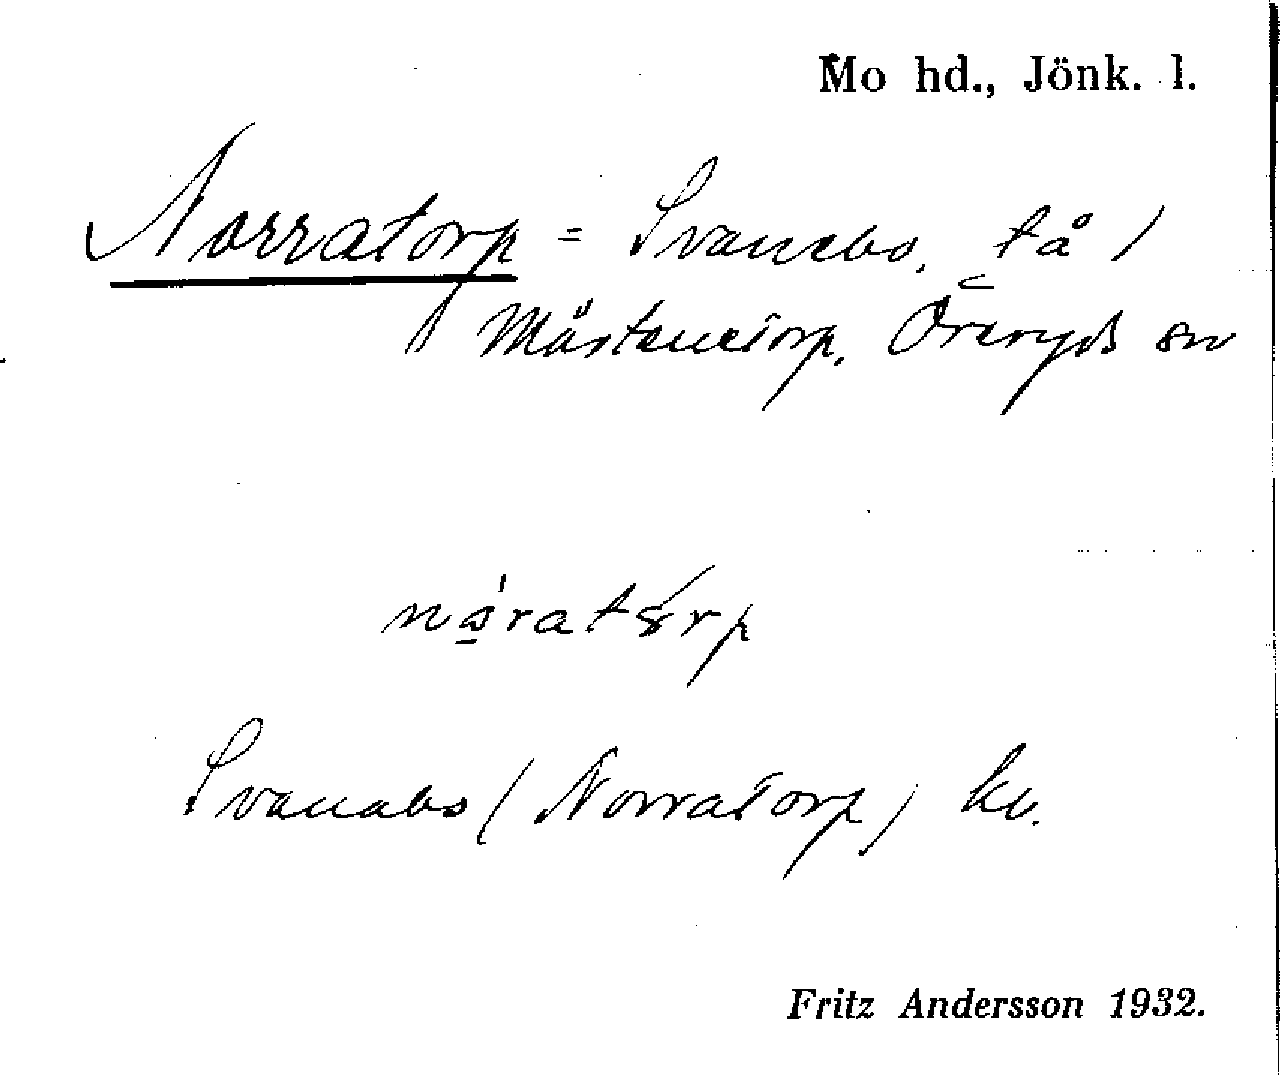 Mo hd., Jönk. l.
Norratorp = Svanebo, tå /
Mårtenstorp, Öreryds sn
náratòrp
Svanabo (Norratorp) kv.
Fritz Andersson 1932.